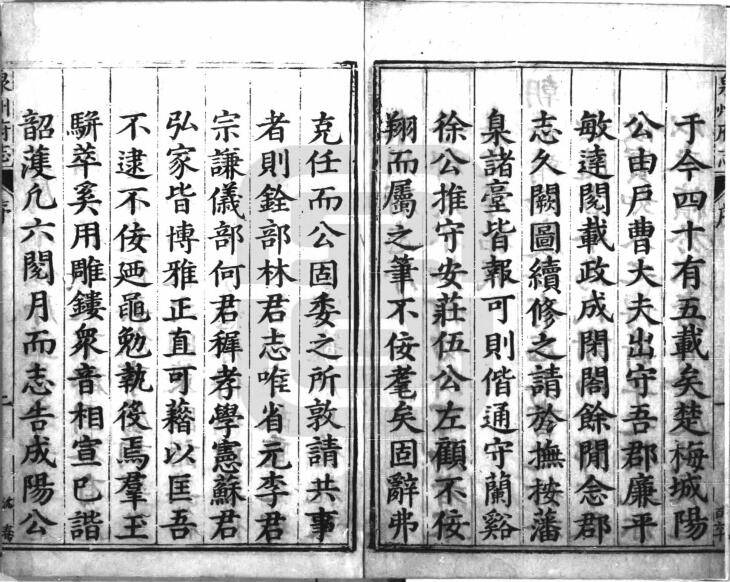 于今四十有五載矣楚梅城陽
公由戶曹大夫出守吾郡廉平
敏達閱載政成閉閤餘閒念郡
志久闕圖續修之請於撫按藩
臬諸臺皆報可則偕通守蘭谿
徐公推守安莊伍公左顧不佞
翔而屬之筆不佞耄矣固辭弗
克任而公固委之所敦請共事
者則銓部林君志唯省元李君
宗謙儀部何君穉孝學憲蘇君
弘家皆博雅正直可藉以匡吾
不逮不佞廼黽勉執役焉羣玉
駢萃奚用雕鏤衆音相宣已諧
韶濩凢六閱月而志告成陽公
泉州府志
序
二